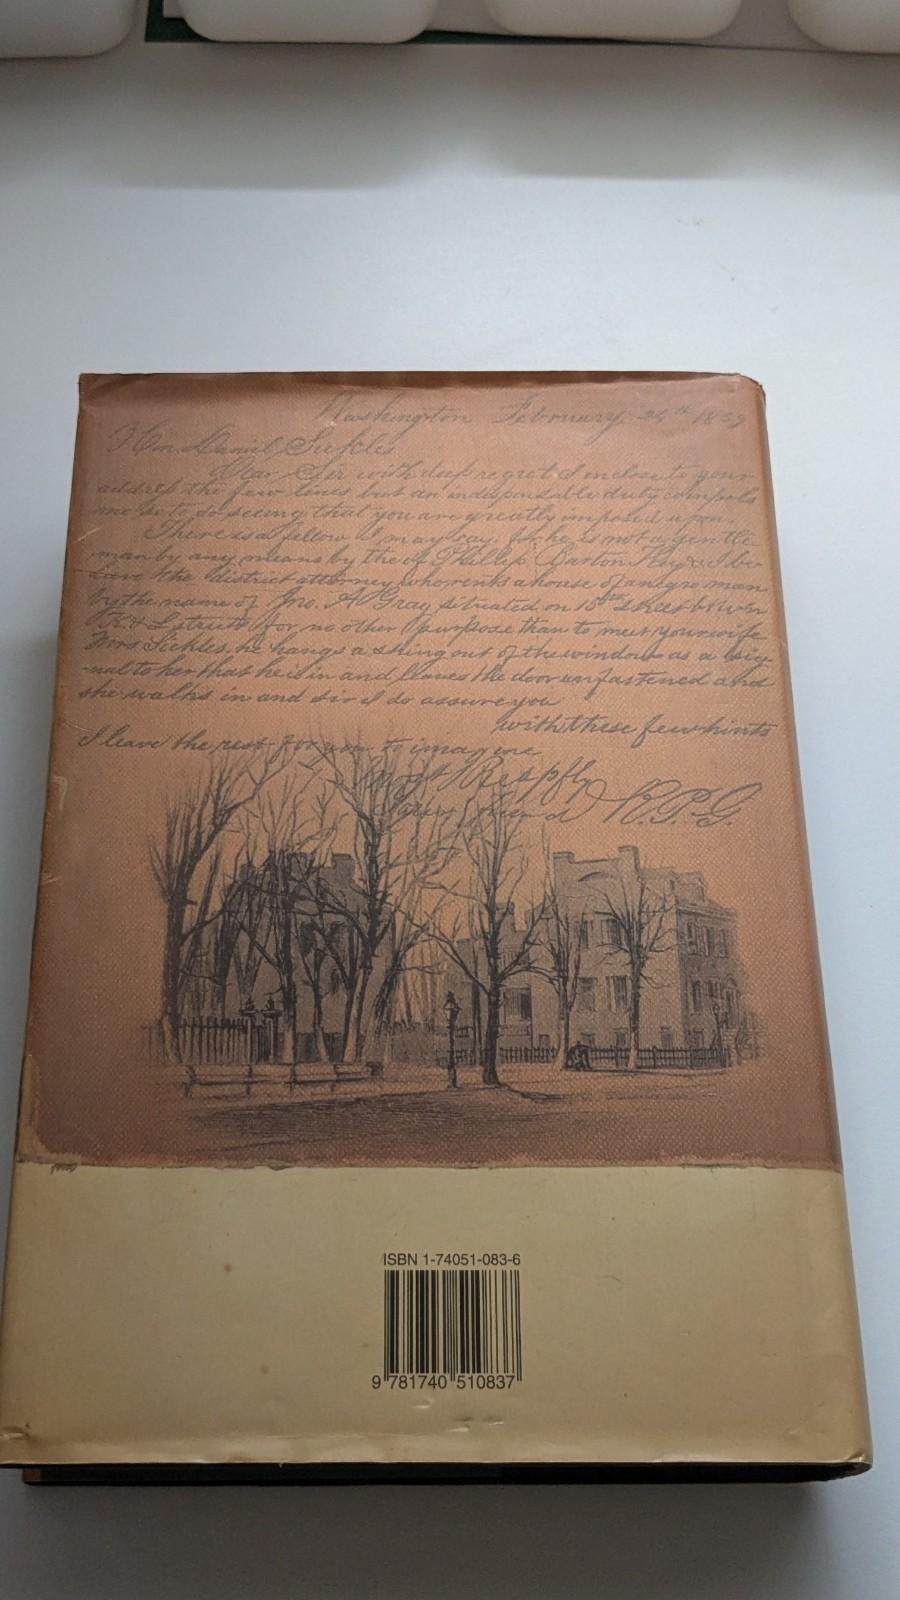 Washington February 24th 1859
Hon. Daniel Sickles
Dear Sir with deep regret I enclose to your
address the few lines but an indispensable duty compels
me so to do seeing that you are greatly imposed upon.
There is a fellow I may say, for he is not a gentle
man by any means by the of Phillip Barton Key & I be-
leave the district attorney who rents a house of a negro man
by the name of Jno. A Gray situated on 15th street btween
K & L streets for no other purpose than to meet your wife
Mrs Sickles. he hangs a string out of the window as a sig-
nal to her that he is in and leaves the door unfastened and
she walks in and sir I do assure you
with these few hints
I leave the rest for you to imagine
Most Respfly
Your friend R.P.G.
ISBN 1-74051-083-6
9 781740 510837